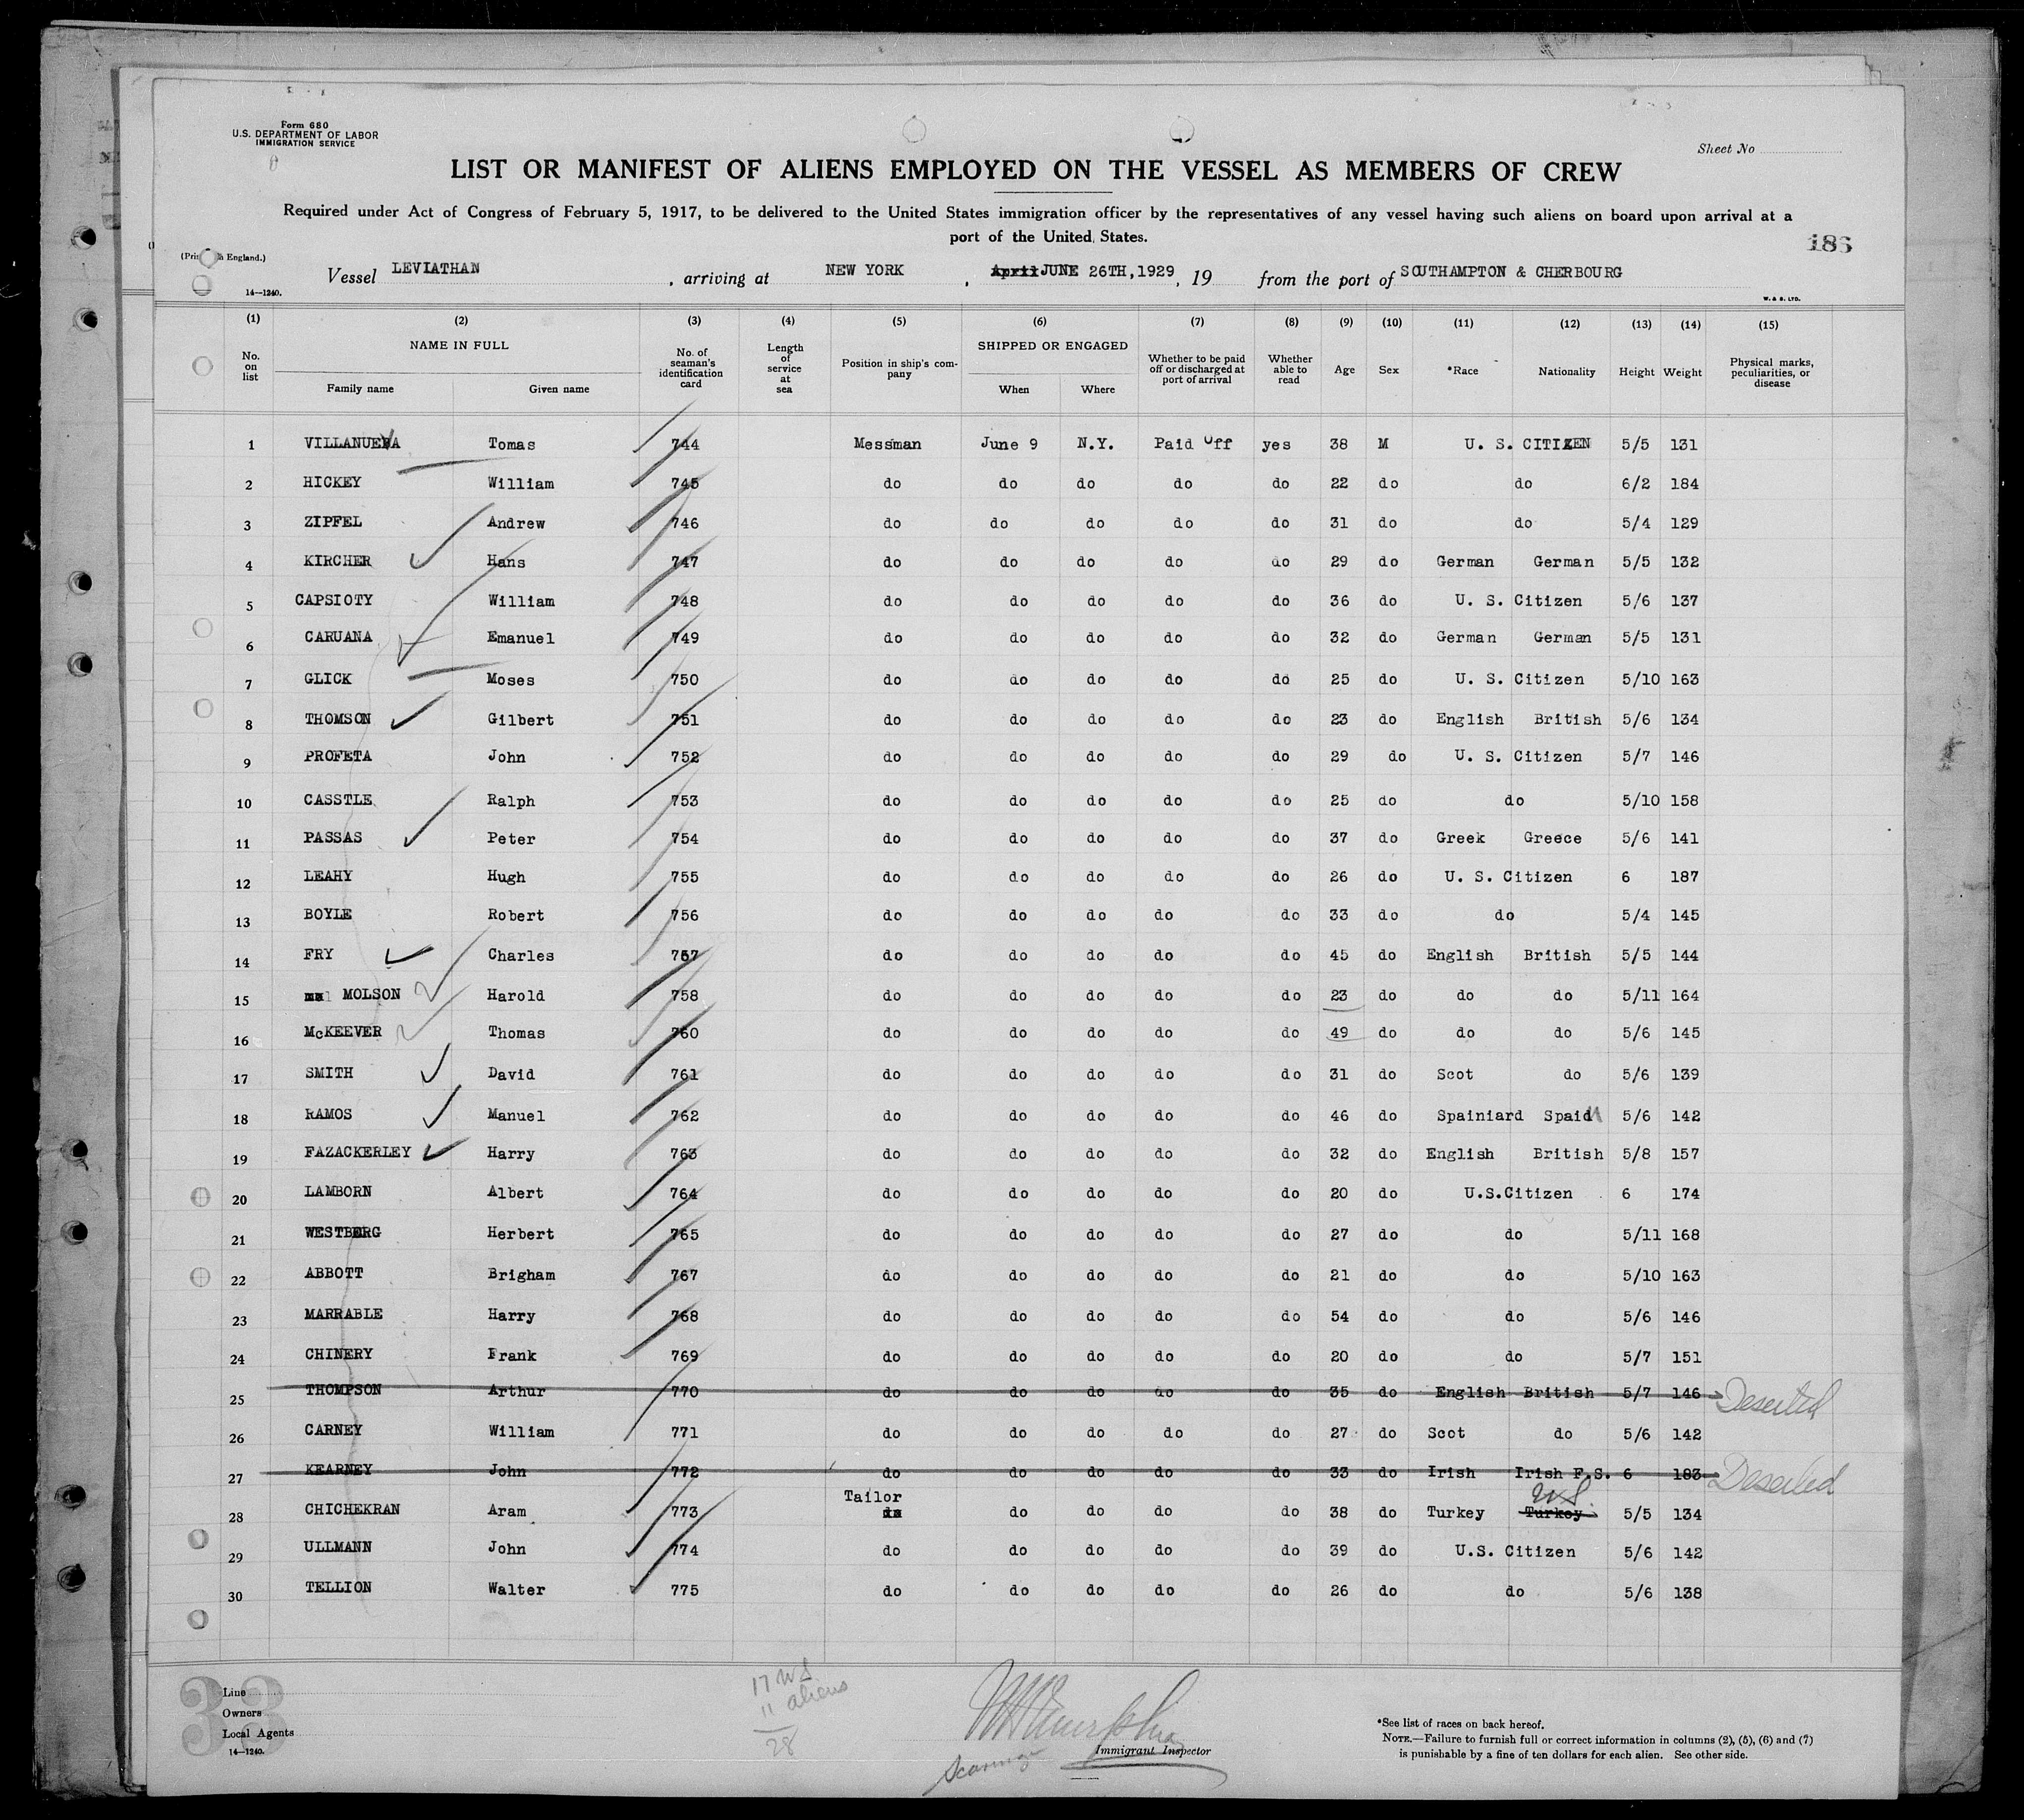 Form 680
U.S. DEPARTMENT OF LABOR
IMMIGRATION SERVICE
Sheet No
LIST OR MANIFEST OF ALIENS EMPLOYED ON THE VESSEL AS MEMBERS OF CREW
Required under Act of Congress of February 5, 1917, to be delivered to the United States immigration officer by the representatives of any vessel having such aliens on board upon arrival at a
port of the United States.
186
(Pri h England.)
Vessel LEVIATHAN , arriving at NEW YORK , April JUNE 26TH,1929 , 19 from the port of SOUTHAMPTON & CHERBOURG
14—1240.
W. & S. LTD.
(1) (2) (3) (4) (5) (6) (7) (8) (9) (10) (11) (12) (13) (14) (15)
No. on list NAME IN FULL Family name Given name No. of seaman's identification card Length of service at sea Position in ship's company SHIPPED OR ENGAGED When Where Whether to be paid off or discharged at port of arrival Whether able to read Age Sex *Race Nationality Height Weight Physical marks, peculiarities, or disease
1 VILLANUEVA Tomas 744 Messman June 9 N.Y. Paid Off yes 38 M U. S. CITIZEN 5/5 131
2 HICKEY William 745 do do do do do 22 do do 6/2 184
3 ZIPFEL Andrew 746 do do do do do 31 do do 5/4 129
4 KIRCHER Hans 747 do do do do do 29 do German German 5/5 132
5 CAPSIOTY William 748 do do do do do 36 do U. S. Citizen 5/6 137
6 CARUANA Emanuel 749 do do do do do 32 do German German 5/5 131
7 GLICK Moses 750 do do do do do 25 do U. S. Citizen 5/10 163
8 THOMSON Gilbert 751 do do do do do 23 do English British 5/6 134
9 PROFETA John 752 do do do do do 29 do U. S. Citizen 5/7 146
10 CASSTLE Ralph 753 do do do do do 25 do do 5/10 158
11 PASSAS Peter 754 do do do do do 37 do Greek Greece 5/6 141
12 LEAHY Hugh 755 do do do do do 26 do U. S. Citizen 6 187
13 BOYLE Robert 756 do do do do do 33 do do 5/4 145
14 FRY Charles 757 do do do do do 45 do English British 5/5 144
15 MOLSON Harold 758 do do do do do 23 do do do 5/11 164
16 McKEEVER Thomas 760 do do do do do 49 do do do 5/6 145
17 SMITH David 761 do do do do do 31 do Scot do 5/6 139
18 RAMOS Manuel 762 do do do do do 46 do Spainiard Spain 5/6 142
19 FAZACKERLEY Harry 763 do do do do do 32 do English British 5/8 157
20 LAMBORN Albert 764 do do do do do 20 do U.S.Citizen 6 174
21 WESTBERG Herbert 765 do do do do do 27 do do 5/11 168
22 ABBOTT Brigham 767 do do do do do 21 do do 5/10 163
23 MARRABLE Harry 768 do do do do do 54 do do 5/6 146
24 CHINERY Frank 769 do do do do do 20 do do 5/7 151
25 THOMPSON Arthur 770 do do do do do 35 do English British 5/7 146 Deserted
26 CARNEY William 771 do do do do do 27 do Scot do 5/6 142
27 KEARNEY John 772 do do do do do 33 do Irish Irish F.S. 6 183 Deserted
28 CHICHEKRAN Aram 773 Tailor do do do do 38 do Turkey Turkey US. 5/5 134
29 ULLMANN John 774 do do do do do 39 do U.S. Citizen 5/6 142
30 TELLION Walter 775 do do do do do 26 do do 5/6 138
33
Line
Owners
Local Agents
14—1240.
17 US
11 aliens
28
Immigrant Inspector
*See list of races on back hereof.
NOTE.—Failure to furnish full or correct information in columns (2), (5), (6) and (7)
is punishable by a fine of ten dollars for each alien. See other side.